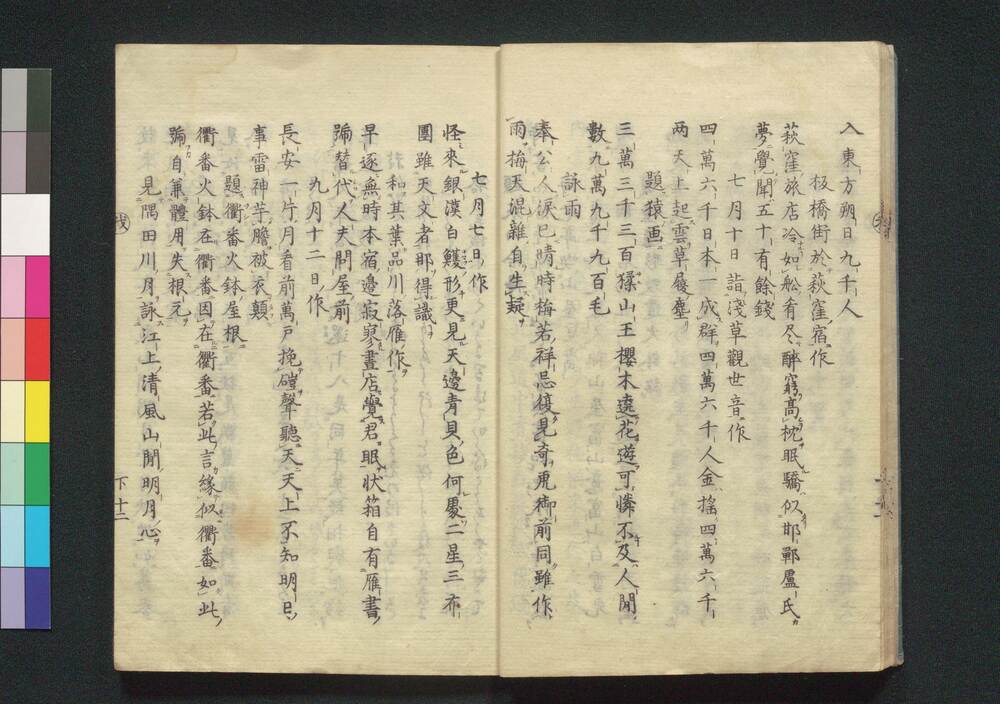 入東方朔日九千人
板橋街於荻窪宿作
荻窪旅店冷如舩肴尽酔窮高枕眠驕似邯鄲盧氏
夢覺聞五十有餘錢
七月十日詣淺草觀世音作
四萬六千日本一成群四萬六千人金揺四萬六千
両天上起雲草履塵
題猿画
三萬三千三百猻山王櫻木遶花遊可憐不及人間
數九萬九千九百毛
詠雨
奉公人涙巳晴時梅若祥忌復見奇鬼御前同雖作
雨梅天混雜自生疑
七月七日作
怪來銀漠白鱝形更見天邊青貝色何處二星三布
團雖天文者那得識
和其葉品川落雁作
早逐無時本宿邊寂寥晝店覺君眠状箱自有雁書
號替代人夫問屋前
九月十二日作
長安一片月看前萬戸挽磑聲聽天天上不知明日
事雷神芋膽被衣顛
題衢番火鉢屋根
衢番火鉢在衢番因在衢番若此言緣似衢番如此
號自兼體用失根元
見隅田川月詠江上清風山間明月心
下十二